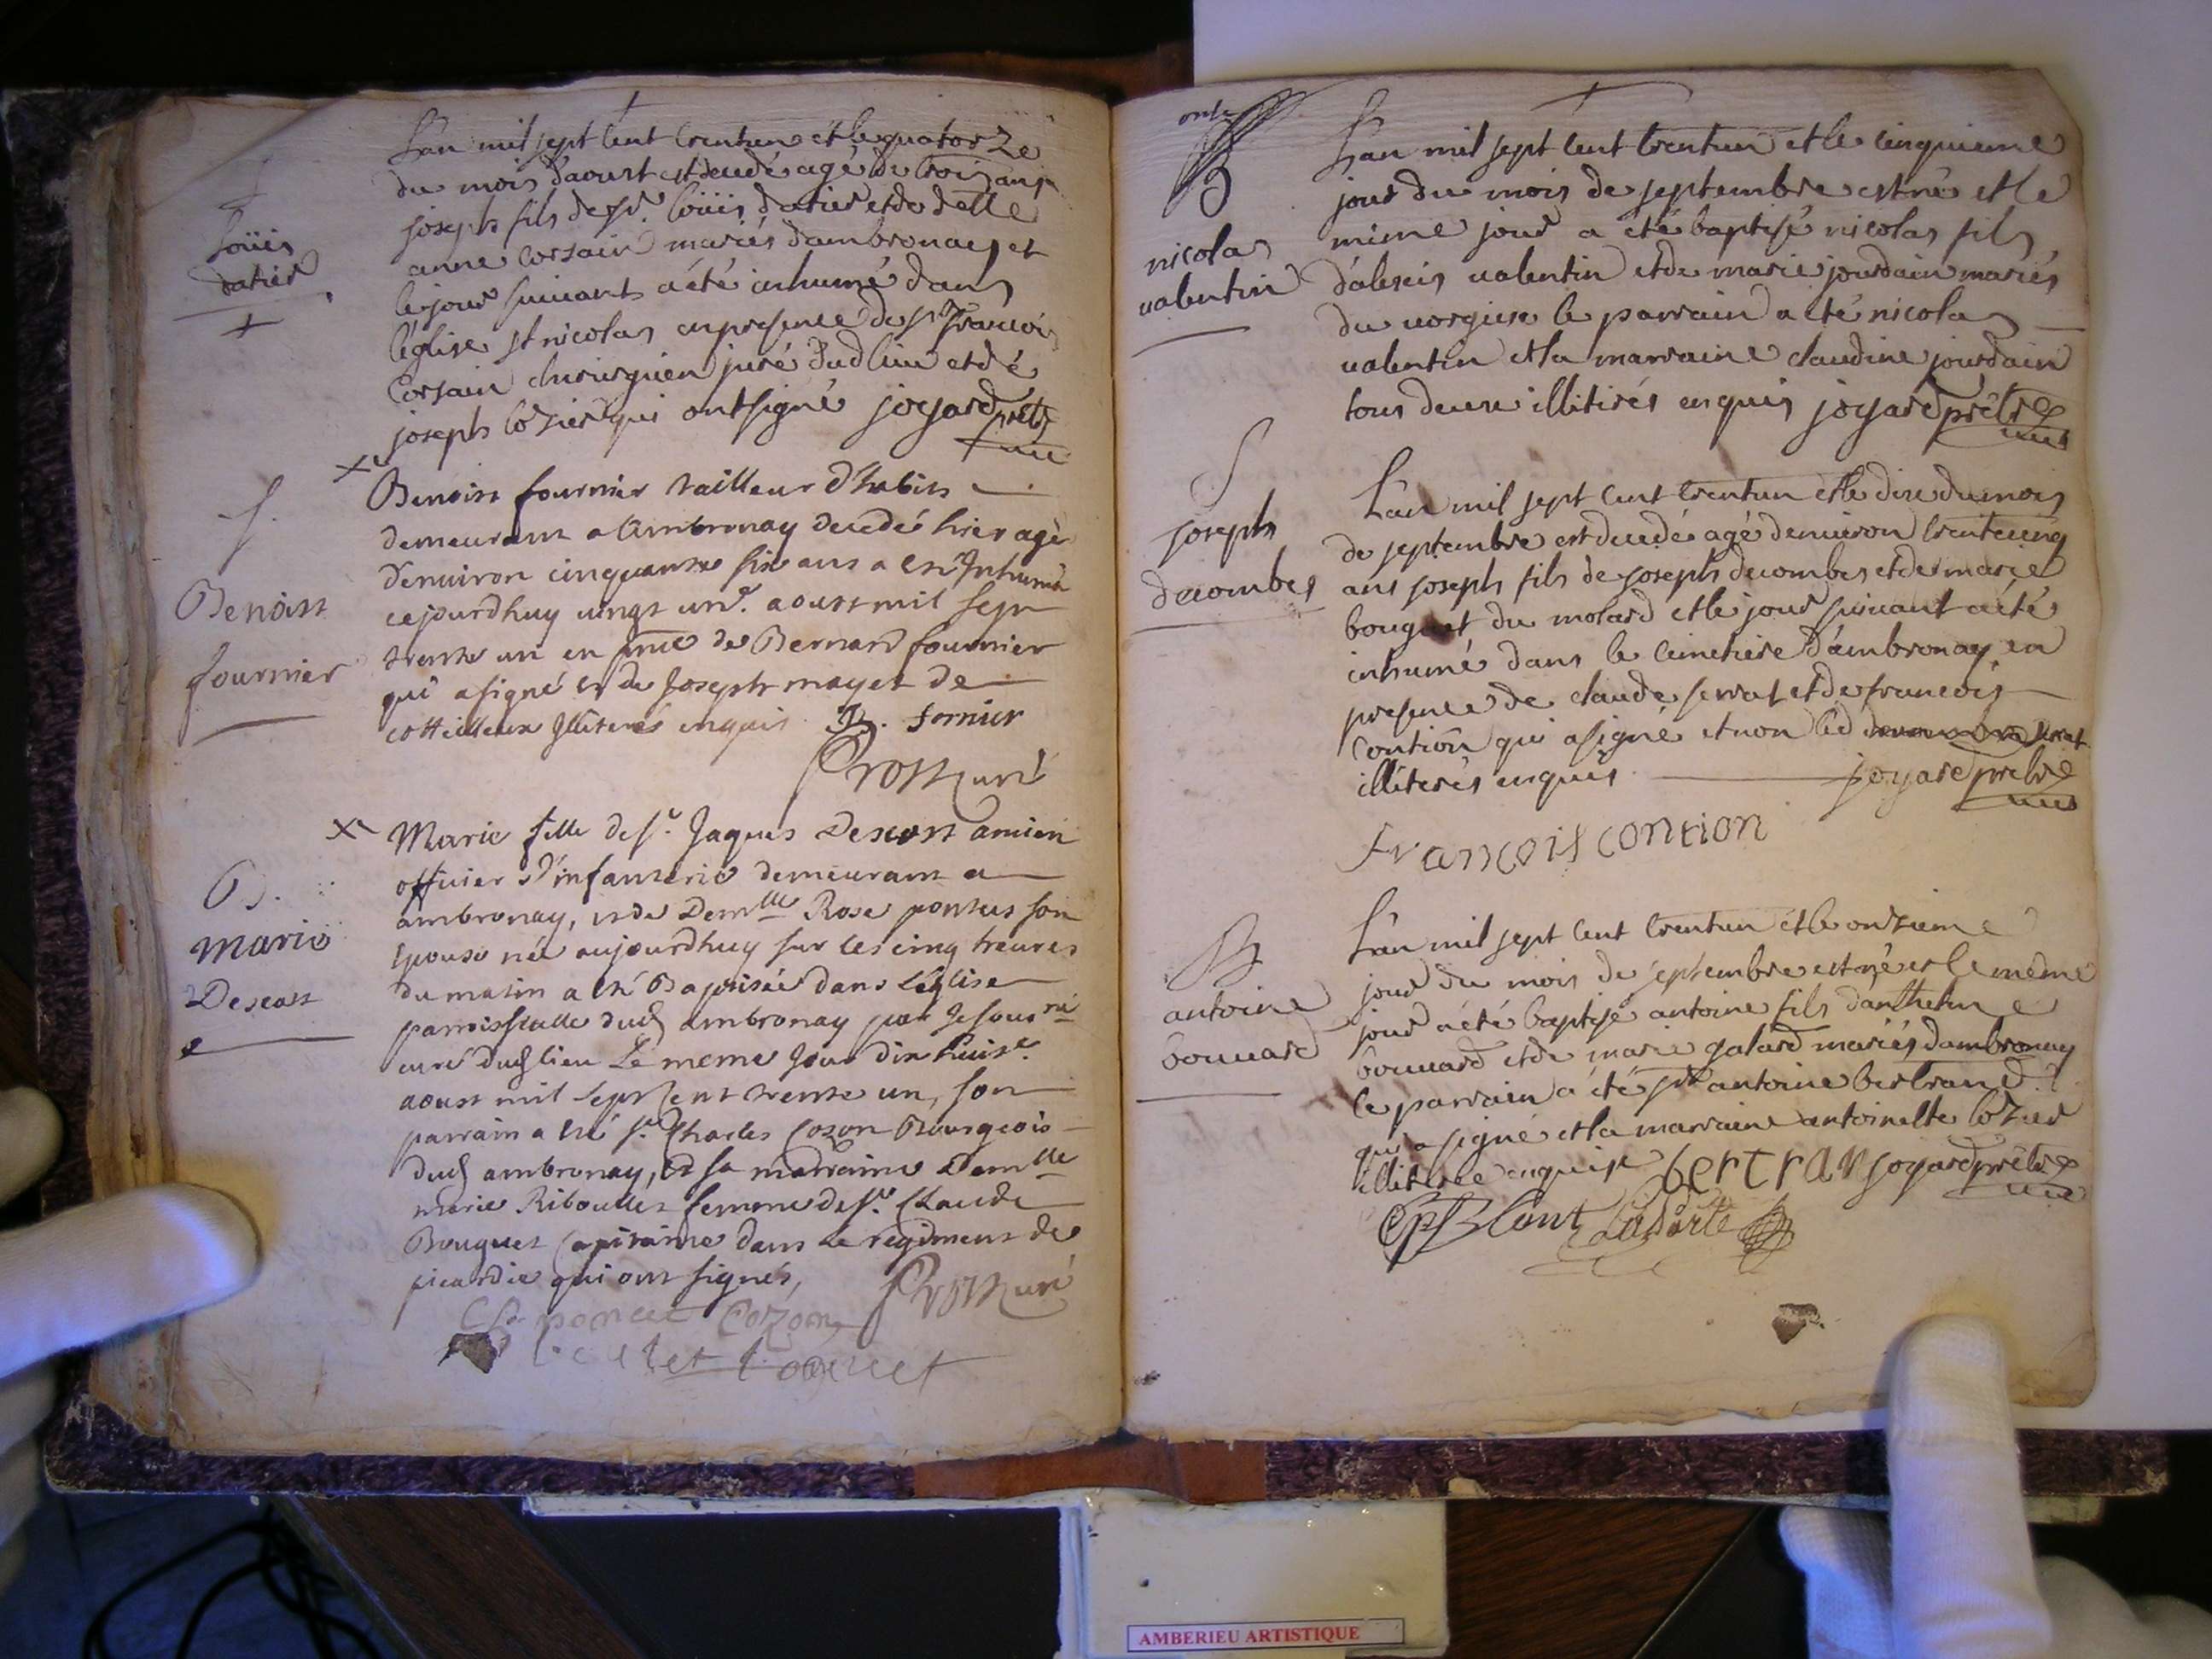 L'an mil sept cent trentun et le quatorze
du mois d'aoust est decedé agé de trois ans
joseph fils de Sr. loüis datier et de delle
anne corsain mariés dambronay et
le jour suivant a été inhumé dans
l'église st nicolas en presence de sr francois
Corsain chirurgien juré dud lieu et de
joseph lozier qui ont signé joyard prêtre
loüis
datier
Benoist fournier tailleur d'habits
demeurant a Ambronay decedé hier agé
denviron cinquante six ans a esté Inhumé
cejourdhuy vingt un e. aoust mil sept
trente un en pnce de Bernard fournier
qui a signé et de Joseph mayet de
cottilieux Illiterés enquis. B. fornier
Prost curé
f.
Benoist
fournier
Marie fille de sr. Jaques Descost ancien
officier d'infanterie demeurant a
ambronay, et de Demlle Rose ponsus son
epouse née aujourdhuy sur les cinq heures
du matin a esté Baptisée dans l'eglise
parroissialle dud ambronay par Je soussné
curé dud lieu Le meme Jour dix huite.
aoust mil sept cent trente un, son
parrain a esté sr. Charles Cozon Bourgeois
dud ambronay, et sa marraine Demlle
marie Riboullet femme de sr. Claude
Bouquet Capitaine dans le regiment de
picardie qui ont signés, Prost curé
Cozon
bouquet
B.
Marie
Descost
onze
B
nicolas
valentin
L'an mil sept cent trentun et le cinquieme
jour du mois de septembre est né et le
mime jour a eté baptisé nicolas fils
d'alexis valentin et de marie jourdain mariés
du vorgier le parrain a eté nicolas
valentin et la marraine claudine jourdain
tous deux illitirés enquis joyard prêtre
vic
S
joseph
decombes
L'an mil sept cent trentun et le dix du mois
de septembre est decedé agé denviron trentecinq
ans joseph fils de joseph decombes et de marie
bouquet du molard et le jour suivant a été
inhumé dans le cimetiere d'ambronay en
presence de claude serrat et de francois
Contion qui a signé et non led serrat
illiterés enquis joyard prebre
vic
Francois contion
B
antoine
bouvard
L'an mil sept cent trentun et le onzieme
jour du mois de septembre est né et le même
jour a été baptisé antoine fils d'anthelme
bouvard et de marie galard mariés dambronay
le parrain a été sr antoine bertrand
qui a signé et la marraine antoinette lozier
illiterée enquise bertran joyard prêtre
vic
AMBERIEU ARTISTIQUE